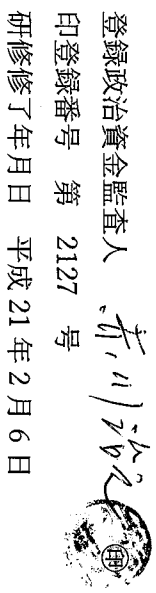 登録政治資金監査人
印登録番号 第 2127 号
研修修了年月日 平成21年2月6日
㊞